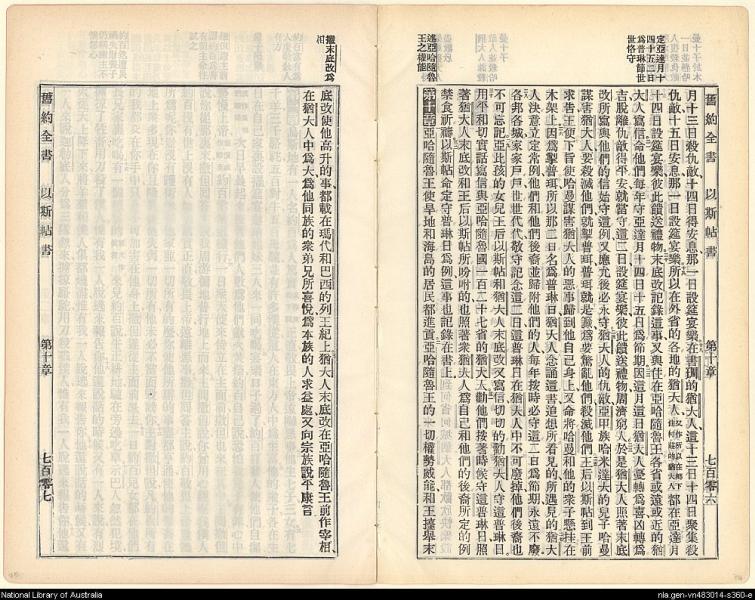 定亞達月十
四十五二日
為普琳節世
世恪守
述亞哈隨魯
王之權能
舊約全書 以斯帖書 第十章 七百零六
月十三日殺仇敵十四日得安息那一日設筵宴樂在書珊的猶大人這十三日十四日聚集殺
仇敵十五日安息那一日設筵宴樂所以在外省的各地的猶大人都在亞達月
十四日設筵宴樂彼此餽送禮物末底改記錄這事又與住在亞哈隨魯王各省或遠或近的猶
大人寫信命他們每年守亞達月十四日十五日為節期因這月這日猶大人憂轉為喜凶轉為
吉脫離仇敵得平安就當守這二日設筵宴樂彼此餽送禮物周濟窮人於是猶大人照著末底
改所寫與他們的信始守這例又應允後必永守猶大人的仇敵亞甲族哈米達大的兒子哈曼
謀害猶大人要殺滅他們就掣普珥普珥就是籤為要驚亂他們殺滅他們王后以斯帖到王前
求告王便下旨使哈曼謀害猶大人的惡事歸到他自己身上又命將哈曼和他的衆子懸挂在
木架上因為掣普珥所以那二日名為普琳日猶大人念誦這書追想所看見的所遇見的猶大
人決意立定常例他們和他們後裔並歸附他們的人每年按時必守這二日為節期永遠不廢
各邦各城家家戶戶世世代代敬守記念這二日這普琳日在猶大人中不可廢掉他們後裔也
不可忘記亞比孩的女兒王后以斯帖和猶大人末底改又寫信切切的勸猶大人守這普琳日
用平和切實話寫信與亞哈隨魯國一百二十七省的猶大人勸他們按著時候守這普琳日照
著猶大人末底改和王后以斯帖所吩咐的也照著衆猶大人為自己和他們的後裔所定的例
禁食祈禱以斯帖命定守普琳日為例這事也記錄在書上
第十章亞哈隨魯王使旱地和海島的居民都進貢亞哈隨魯王的一切權勢威能和王擡舉末
擢末底改為
相
底改使他高升的事都載在瑪代和巴西的列王紀上猶大人末底改在亞哈隨魯王前作宰相
在猶大人中為大為他同族的衆弟兄所喜悅為本族的人求益處又向宗族說平康言
舊約全書 以斯帖書 第十章 七百零七
National Library of Australia
nla.gen-vn483014-s360-e